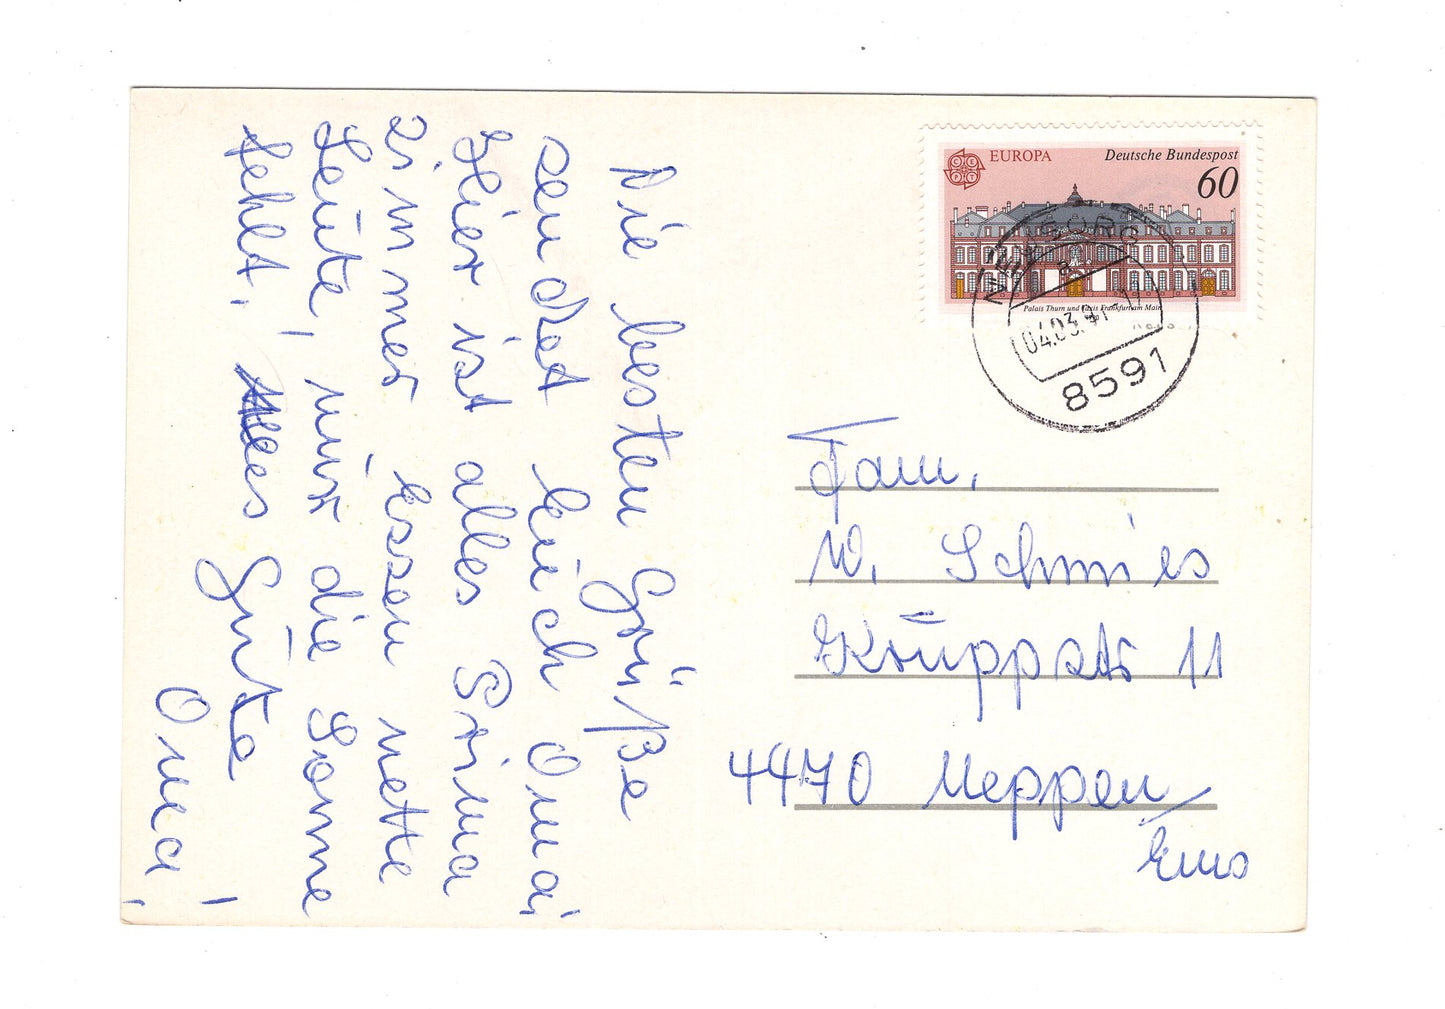 Die besten Grüße
sendet Euch Oma,
Hier ist alles Prima
Zimmer, Essen nette
Leute, nur die Sonne
fehlt. Alles Gute
Oma!
EUROPA
Deutsche Bundespost
60
CEPT
Palais Thurn und Taxis Frankfurt am Main
04.03.91-17
8591
Fam.
W. Schmies
Kruppstr 11
4470 Meppen/
Ems